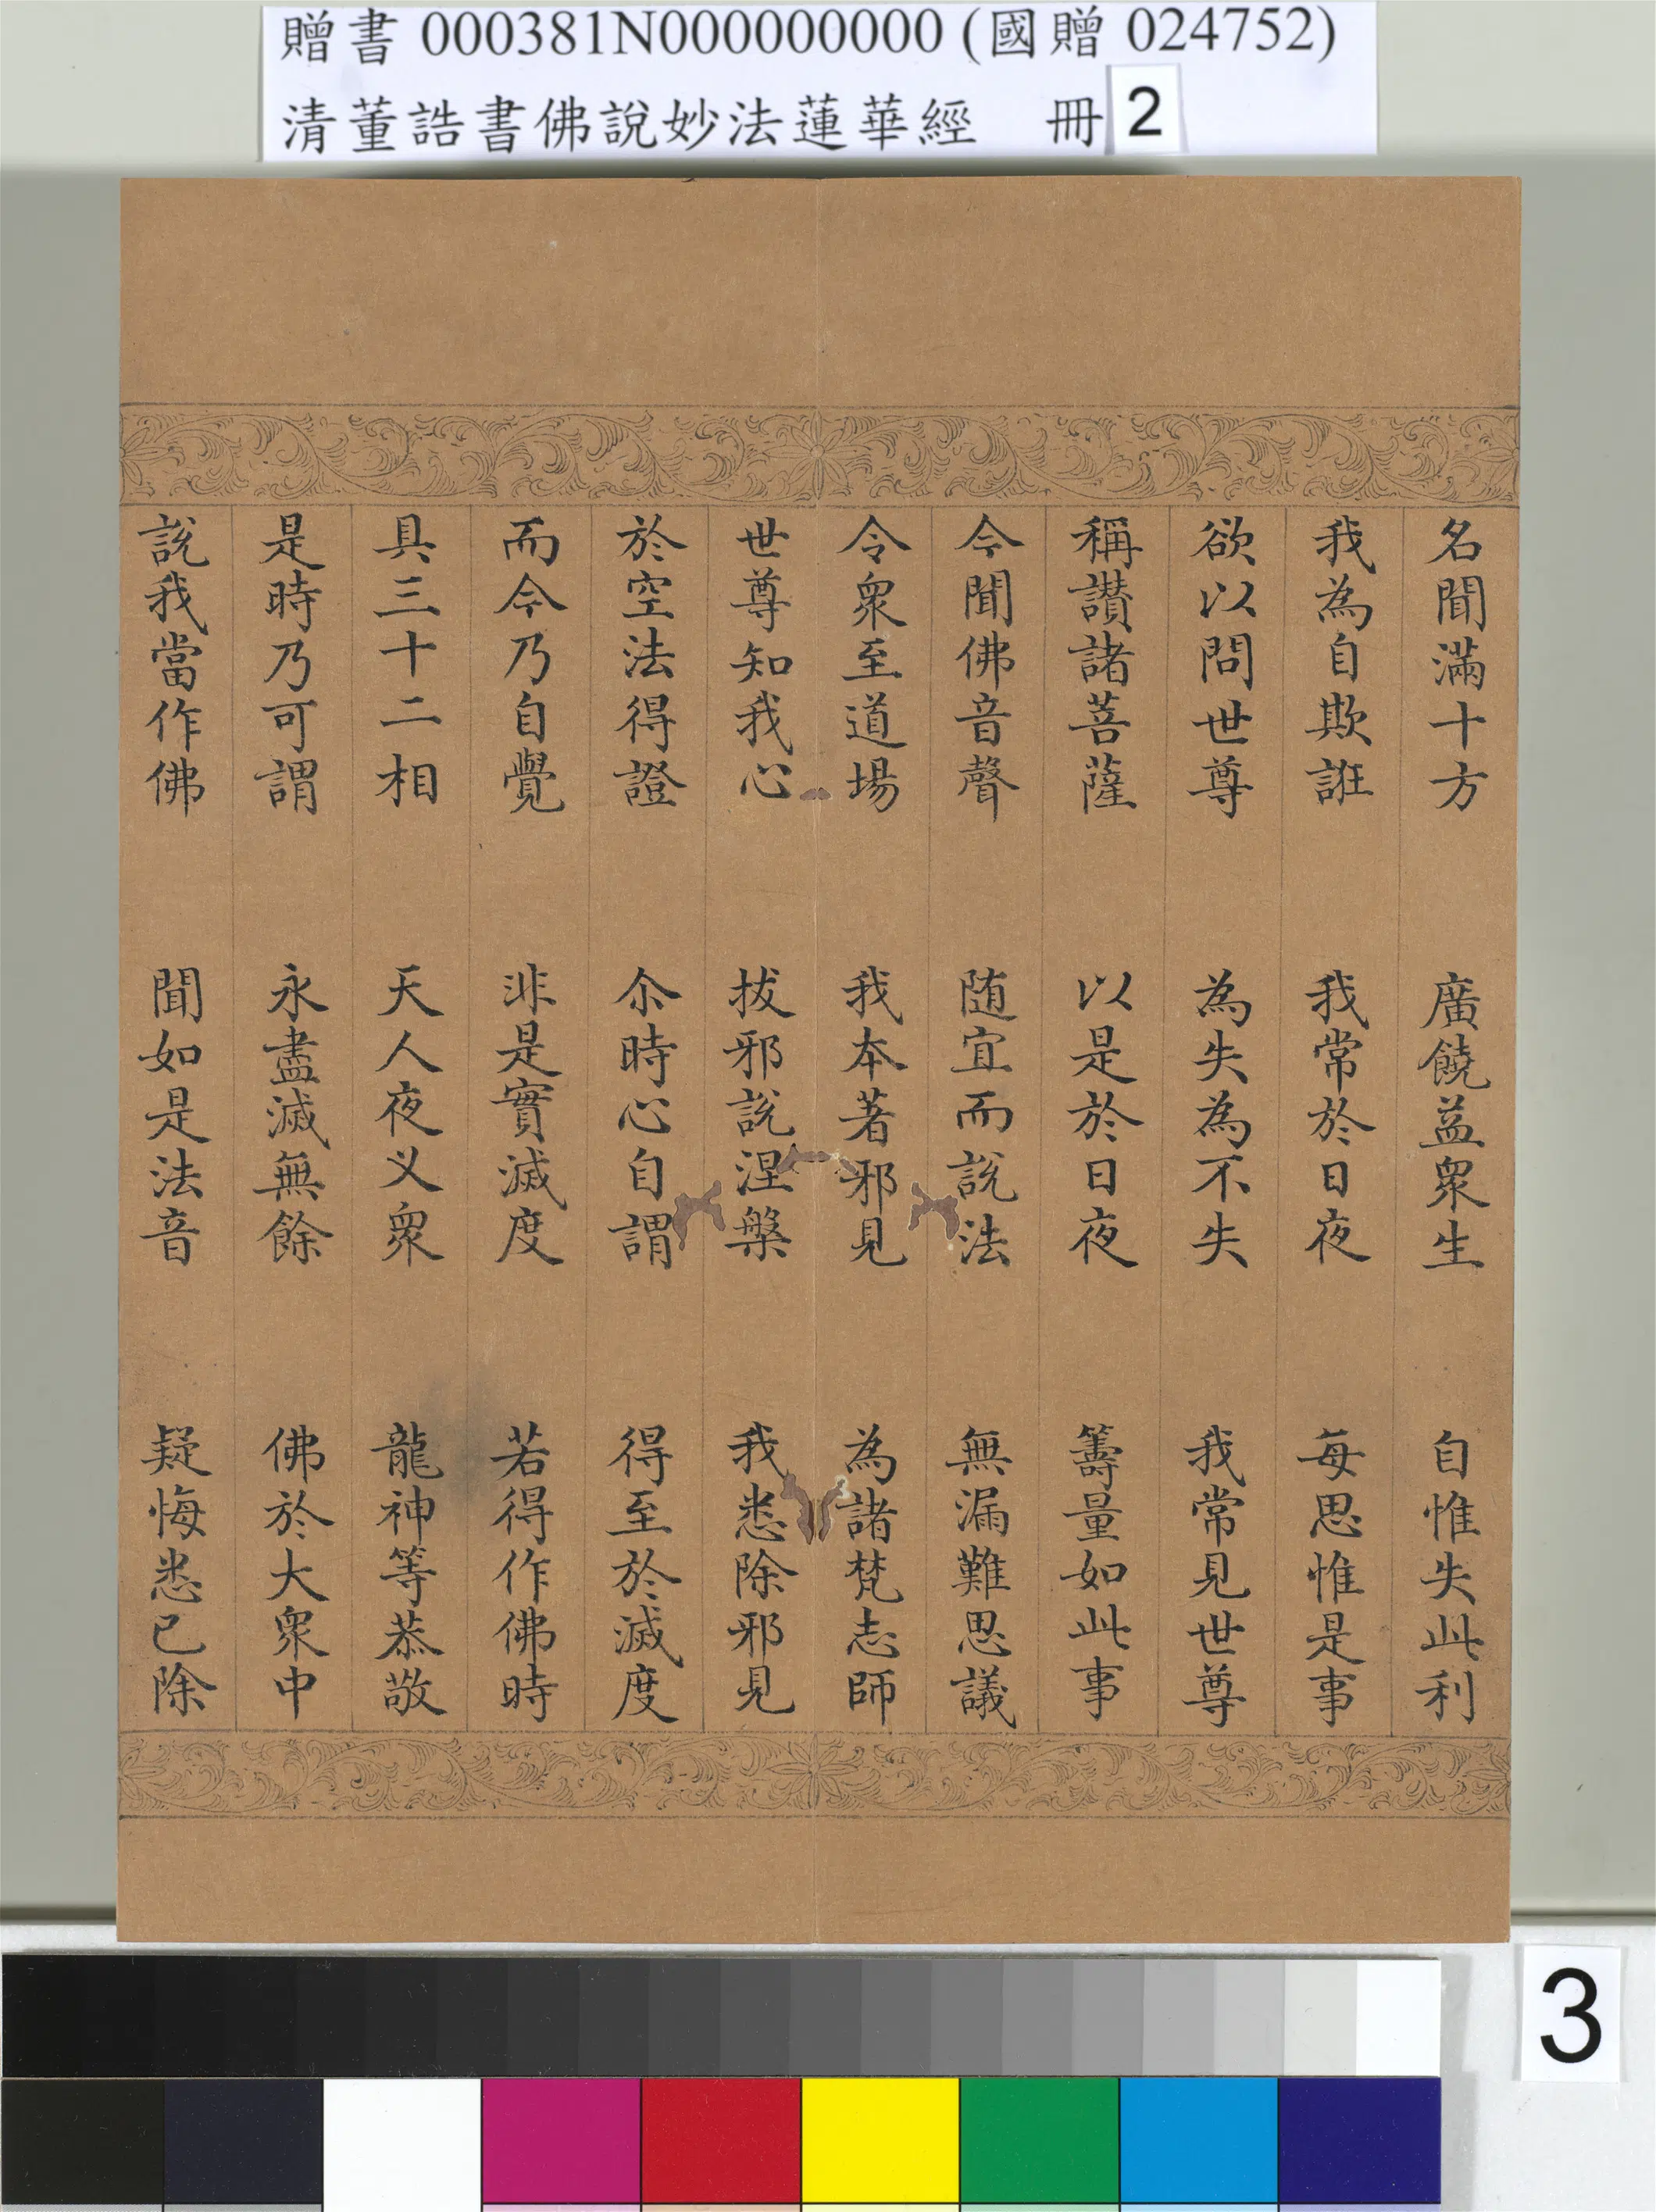 贈書 000381N000000000 (國贈 024752)
清董誥書佛說妙法蓮華經 冊 2
名聞滿十方 廣饒益眾生 自惟失此利
我為自欺誑 我常於日夜 每思惟是事
欲以問世尊 為失為不失 我常見世尊
稱讚諸菩薩 以是於日夜 籌量如此事
今聞佛音聲 随宜而說法 無漏難思議
令眾至道場 我本著邪見 為諸梵志師
世尊知我心 拔邪說涅槃 我悉除邪見
於空法得證 尒時心自謂 得至於滅度
而今乃自覺 非是實滅度 若得作佛時
具三十二相 天人夜义眾 龍神等恭敬
是時乃可謂 永盡滅無餘 佛於大眾中
說我當作佛 聞如是法音 疑悔悉已除
3